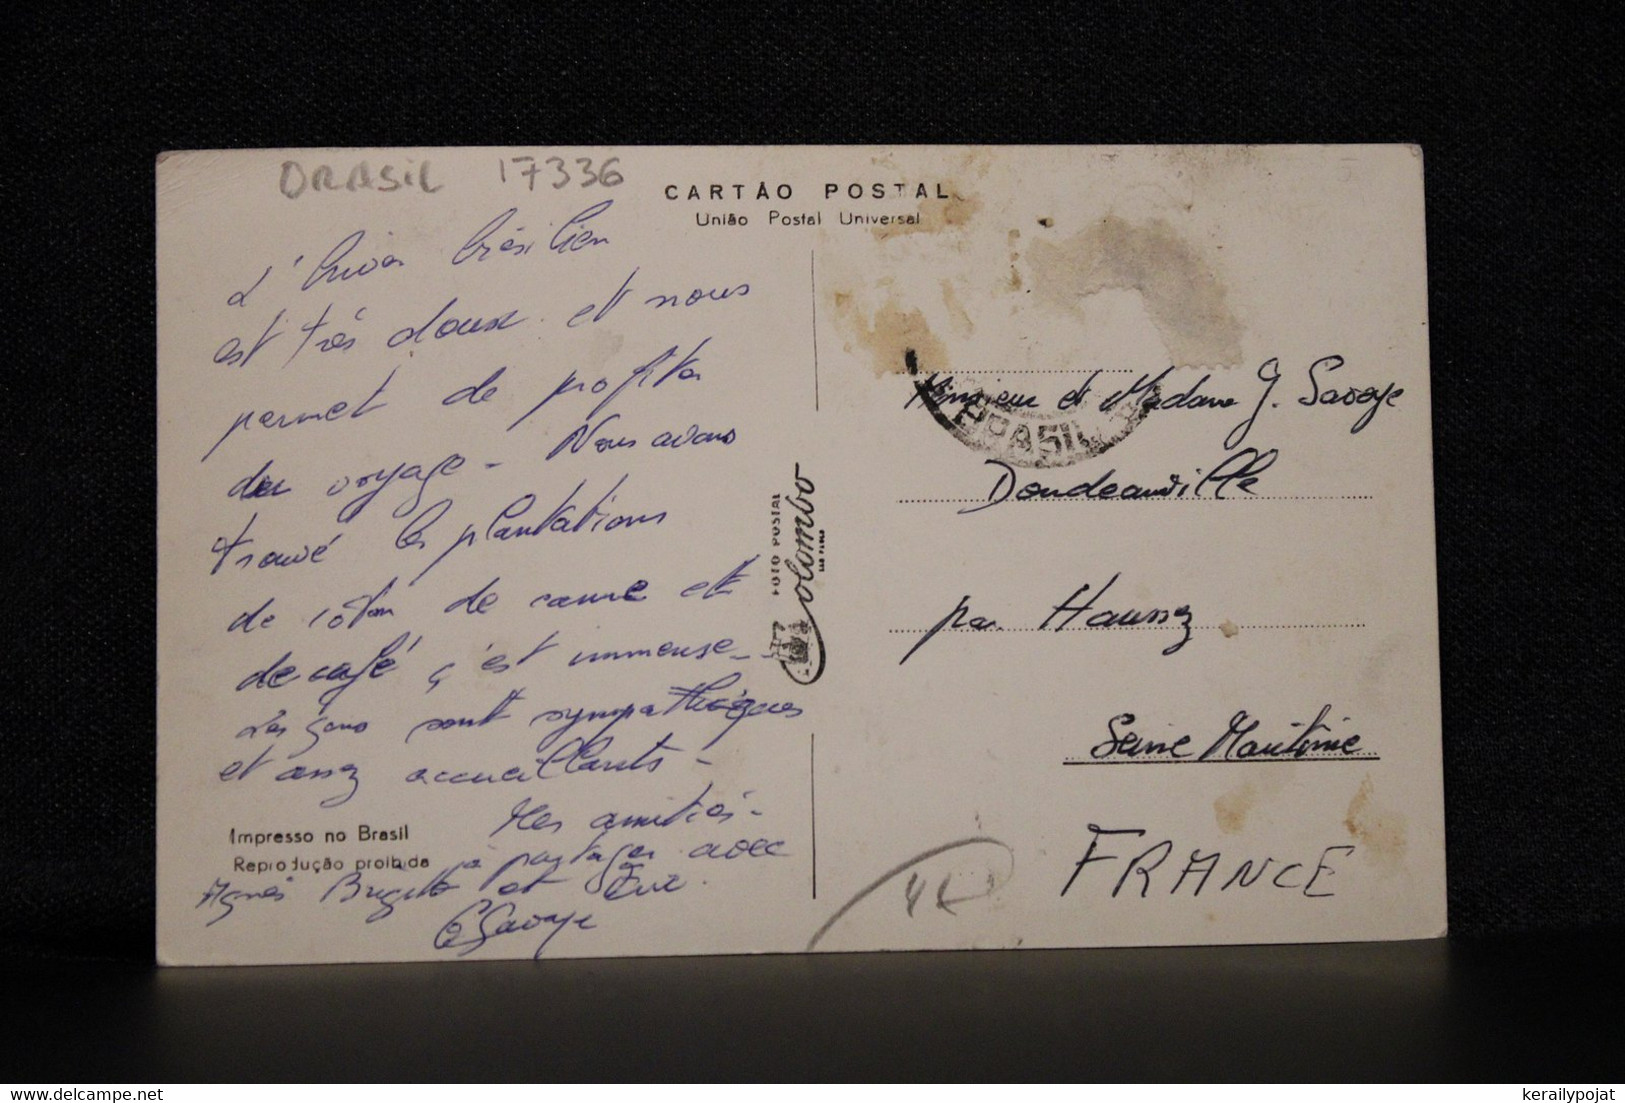 BRASIL 17336
CARTÃO POSTAL
União Postal Universal
L'hiver brésilien
est très doux et nous
permet de profiter
du voyage - Nous avons
trouvé les plantations
de coton de canne et
de café ç'est immense -
Les gens sont sympathiques
et assez accueillants -
Mes amitiés -
à partager avec
Agnès Brigitte et Luc.
Savoye
Impresso no Brasil
Reprodução proibida
FOTO POSTAL
Colombo
SÃO PAULO
BRASIL
Monsieur et Madame J. Savoye
Doudeauville
par Haussez
Seine Maritime
FRANCE
44
kerailypojat